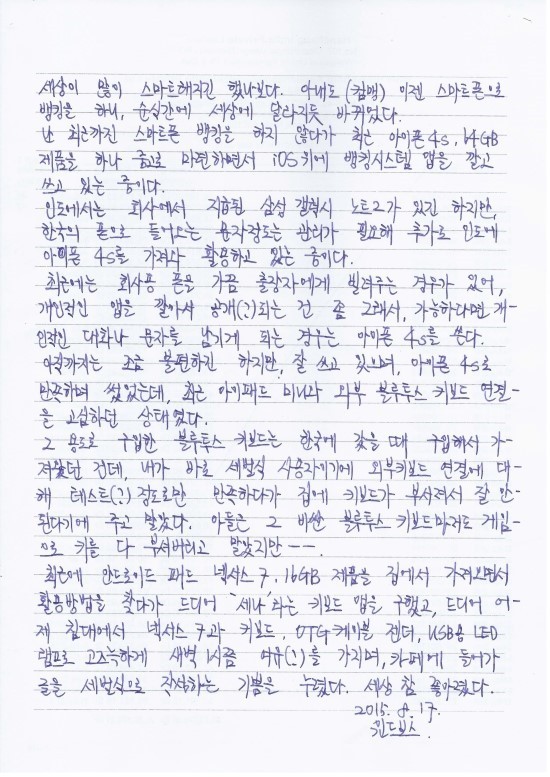 세상이 많이 스마트해지긴 했나보다. 아내도 (컴맹) 이젠 스마트폰으로
뱅킹을 하니, 순식간에 세상에 달라지듯 바뀌었다.
난 최근까진 스마트폰 뱅킹을 하지 않다가 최근 아이폰 4s, 64GB
제품을 하나 중고로 마련하면서 iOS키에 뱅킹시스템 앱을 깔고
쓰고 있는 중이다.
인도에서는 회사에서 지급된 삼성 갤럭시 노트2가 있긴 하지만,
한국의 폰으로 들어오는 문자정도는 관리가 필요해 추가로 인도에
아이폰 4s를 가져와 활용하고 있는 중이다.
최근에는 회사용 폰을 가끔 출장자에게 빌려주는 경우가 있어,
개인적인 앱을 깔아서 공개(?)되는 건 좀 그래서, 가능하다면 개-
인적인 대화나 문자를 남기게 되는 경우는 아이폰 4s를 쓴다.
아직까지는 조금 불편하긴 하지만, 잘 쓰고 있으며, 아이폰 4s로
만족하며 썼었는데, 최근 아이패드 미니와 외부 블루투스 키보드 연결-
을 고심하던 상태였다.
그 용도로 구입한 블루투스 키보드는 한국에 갔을 때 구입해서 가-
져왔던 건데, 내가 바로 세벌식 사용자이기에 외부키보드 연결에 대-
해 테스트(?) 정도로만 만족하다가 집에 키보드가 부서져서 잘 안-
된다기에 주고 말았다. 아들은 그 비싼 블루투스 키보드마저도 게임-
으로 키를 다 부셔버리고 말았지만 ――.
최근에 안드로이드 패드 넥서스 7, 16GB 제품을 집에서 가져오면서
활용방법을 찾다가 드디어 '세나'라는 키보드 앱을 구했고, 드디어 어-
제 침대에서 넥서스 7과 키보드, OTG케이블 젠더, USB용 LED
램프로 고즈녁하게 새벽 1시쯤 여유(?)를 가지며, 카페에 들어가
글을 세벌식으로 작성하는 기쁨을 누렸다. 세상 참 좋아졌다.
2015. 8. 17.
윈드보스.